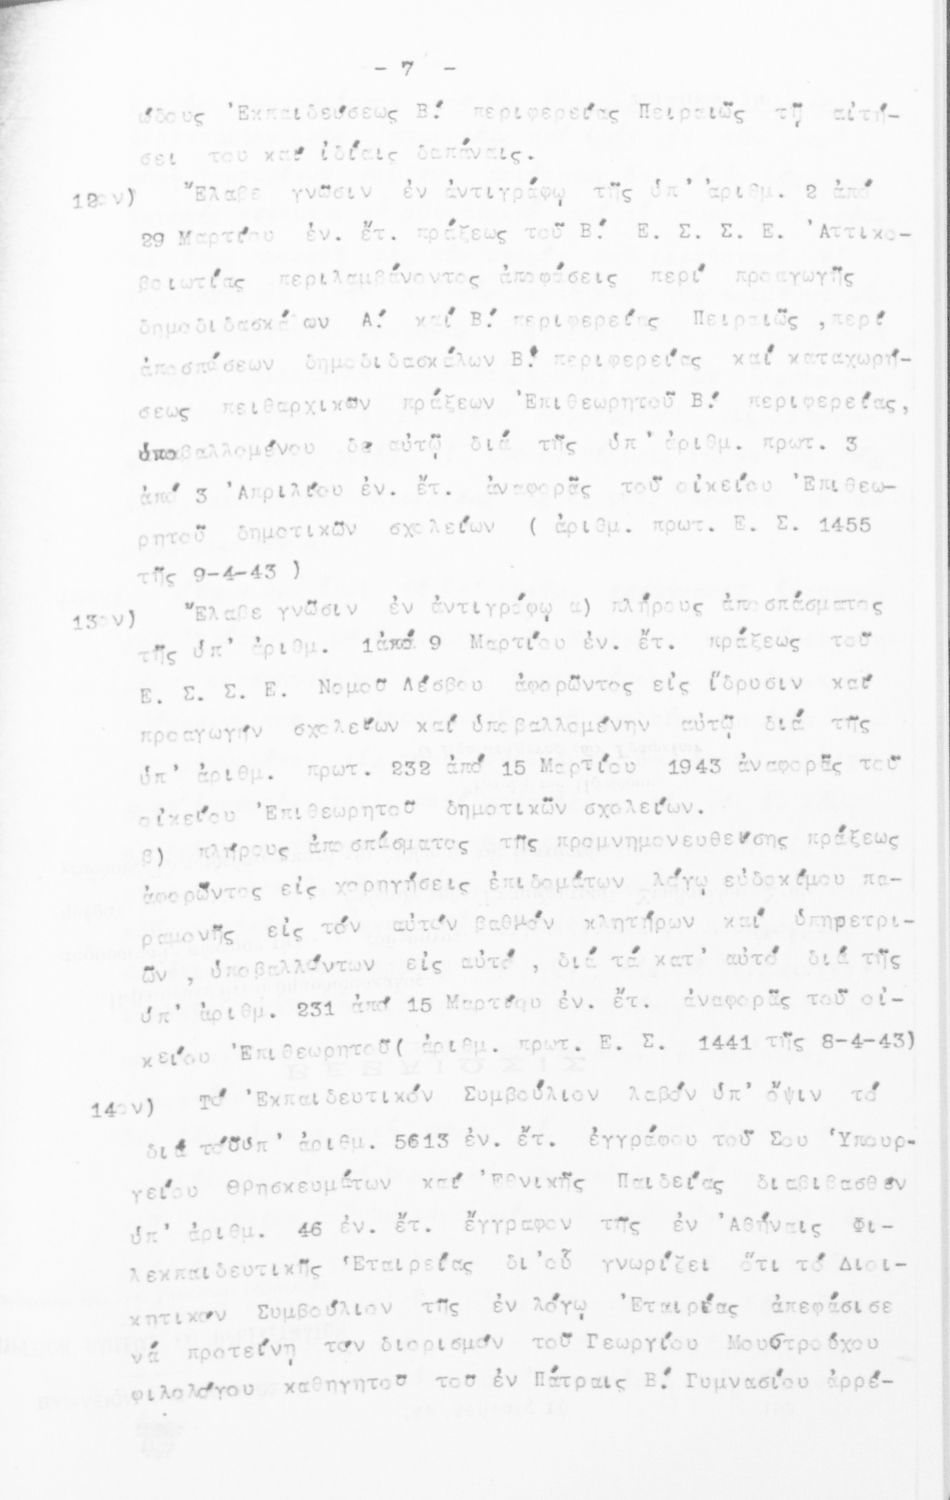 - 7 -
ώδους Ἐκπαιδεύσεως Β.' περιφερείας Πειραιῶς τῇ αἰτή-
σει του καί ἰδίαις δαπάναις.
12ον) Ἔλαβε γνῶσιν ἐν ἀντιγράφῳ τῆς ὑπ' ἀριθμ. 2 ἀπό
29 Μαρτίου ἐν. ἔτ. πράξεως τοῦ Β.' Ε. Σ. Σ. Ε. Ἀττικο-
βοιωτίας περιλαμβάνοντος ἀποφάσεις περί προαγωγῆς
δημοδιδασκάλων Α.' καί Β.' περιφερείας Πειραιῶς ,περί
ἀποσπάσεων δημοδιδασκάλων Β.' περιφερείας καί καταχωρή-
σεως πειθαρχικῶν πράξεων Ἐπιθεωρητοῦ Β.' περιφερείας,
ὑποβαλλομένου δε αὐτῷ διά τῆς ὑπ' ἀριθμ. πρωτ. 3
ἀπό 3 Ἀπριλίου ἐν. ἔτ. ἀναφορᾶς τοῦ οἰκείου Ἐπιθεω-
ρητοῦ δημοτικῶν σχολείων ( ἀριθμ. πρωτ. Ε. Σ. 1455
τῆς 9-4-43 )
13ον) Ἔλαβε γνῶσιν ἐν ἀντιγράφῳ α) πλήρους ἀποσπάσματος
τῆς ὑπ' ἀριθμ. 1ἀπό 9 Μαρτίου ἐν. ἔτ. πράξεως τοῦ
Ε. Σ. Σ. Ε. Νομοῦ Λέσβου ἀφορῶντος εἰς ἵδρυσιν καί
προαγωγήν σχολείων καί ὑποβαλλομένην αὐτῷ διά τῆς
ὑπ' ἀριθμ. πρωτ. 232 ἀπό 15 Μαρτίου 1943 ἀναφορᾶς τοῦ
οἰκείου Ἐπιθεωρητοῦ δημοτικῶν σχολείων.
β) πλήρους ἀποσπάσματος τῆς προμνημονευθείσης πράξεως
ἀφορῶντος εἰς χορηγήσεις ἐπιδομάτων λόγῳ εὐδοκίμου πα-
ραμονῆς εἰς τόν αὐτόν βαθμόν κλητήρων καί ὑπηρετρι-
ῶν , ὑποβαλλόντων εἰς αὐτό , διά τά κατ' αὐτό διά τῆς
ὑπ' ἀριθμ. 231 ἀπό 15 Μαρτίου ἐν. ἔτ. ἀναφορᾶς τοῦ οἰ-
κείου Ἐπιθεωρητοῦ( ἀριθμ. πρωτ. Ε. Σ. 1441 τῆς 8-4-43)
14ον) Τό Ἐκπαιδευτικόν Συμβούλιον λαβόν ὑπ' ὄψιν τό
διά τόῦὑπ' ἀριθμ. 5613 ἐν. ἔτ. ἐγγράφου τοῦ Σου Ὑπουρ-
γείου Θρησκευμάτων καί Ἐθνικῆς Παιδείας διαβιβασθέν
ὑπ' ἀριθμ. 46 ἐν. ἔτ. ἔγγραφον τῆς ἐν Ἀθήναις Φι-
λεκπαιδευτικῆς Ἑταιρείας δι'οὗ γνωρίζει ὅτι τό Διοι-
κητικόν Συμβούλιον τῆς ἐν λόγῳ Ἑταιρίας ἀπεφάσισε
νά προτείνῃ τόν διορισμόν τοῦ Γεωργίου Μουστρούχου
φιλολόγου καθηγητοῦ τοῦ ἐν Πάτραις Β.' Γυμνασίου ἀρρέ-